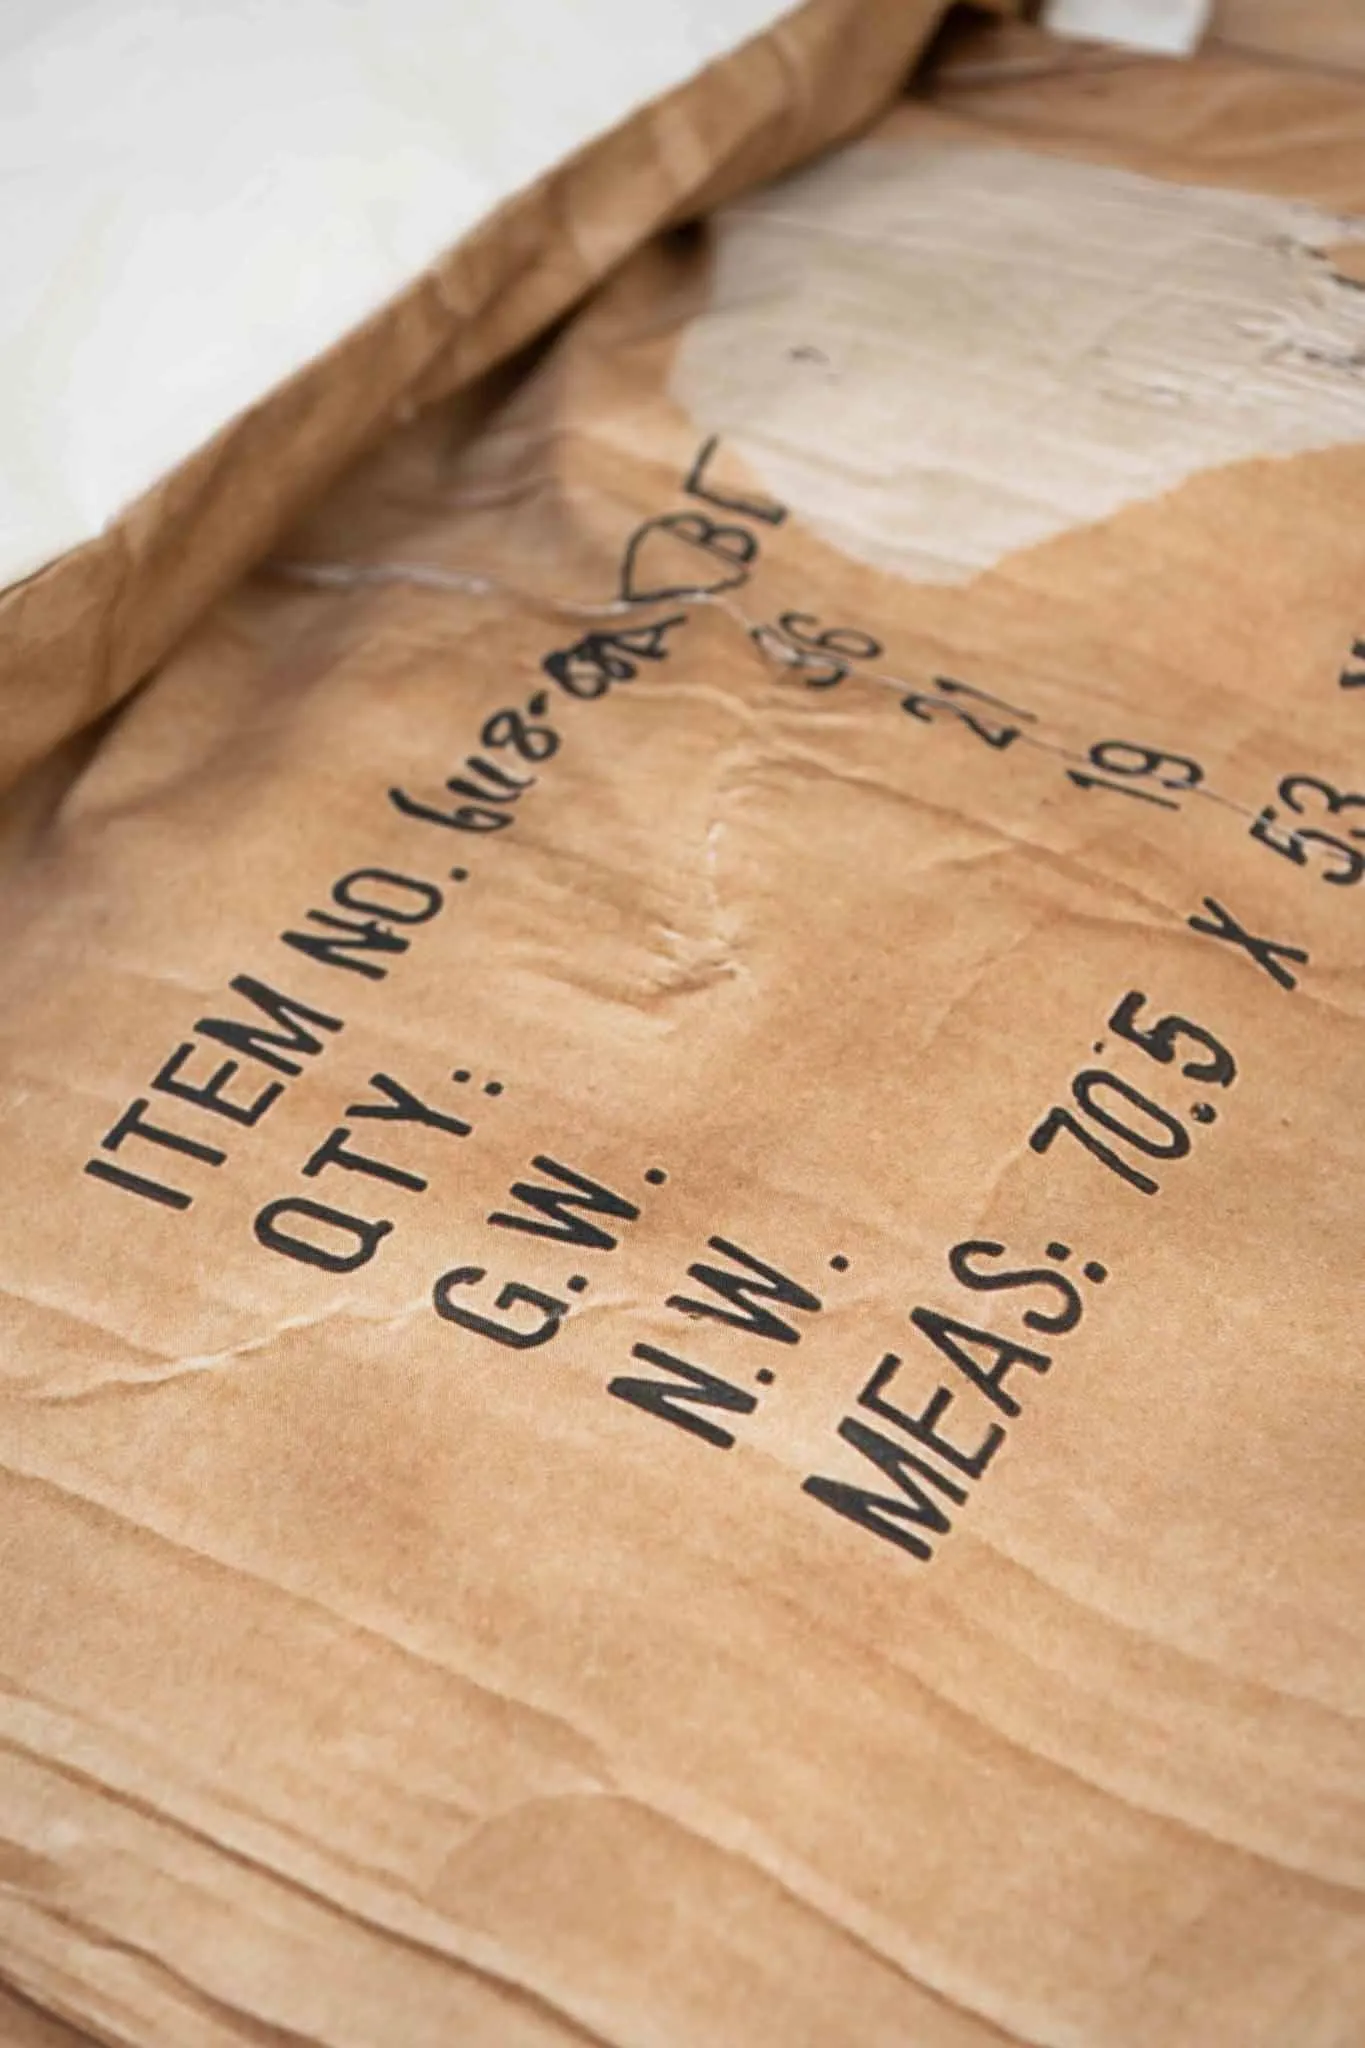 ITEM NO. 6118-
QTY.: 36
G.W. 21
N.W. 19
MEAS: 70.5 X 53